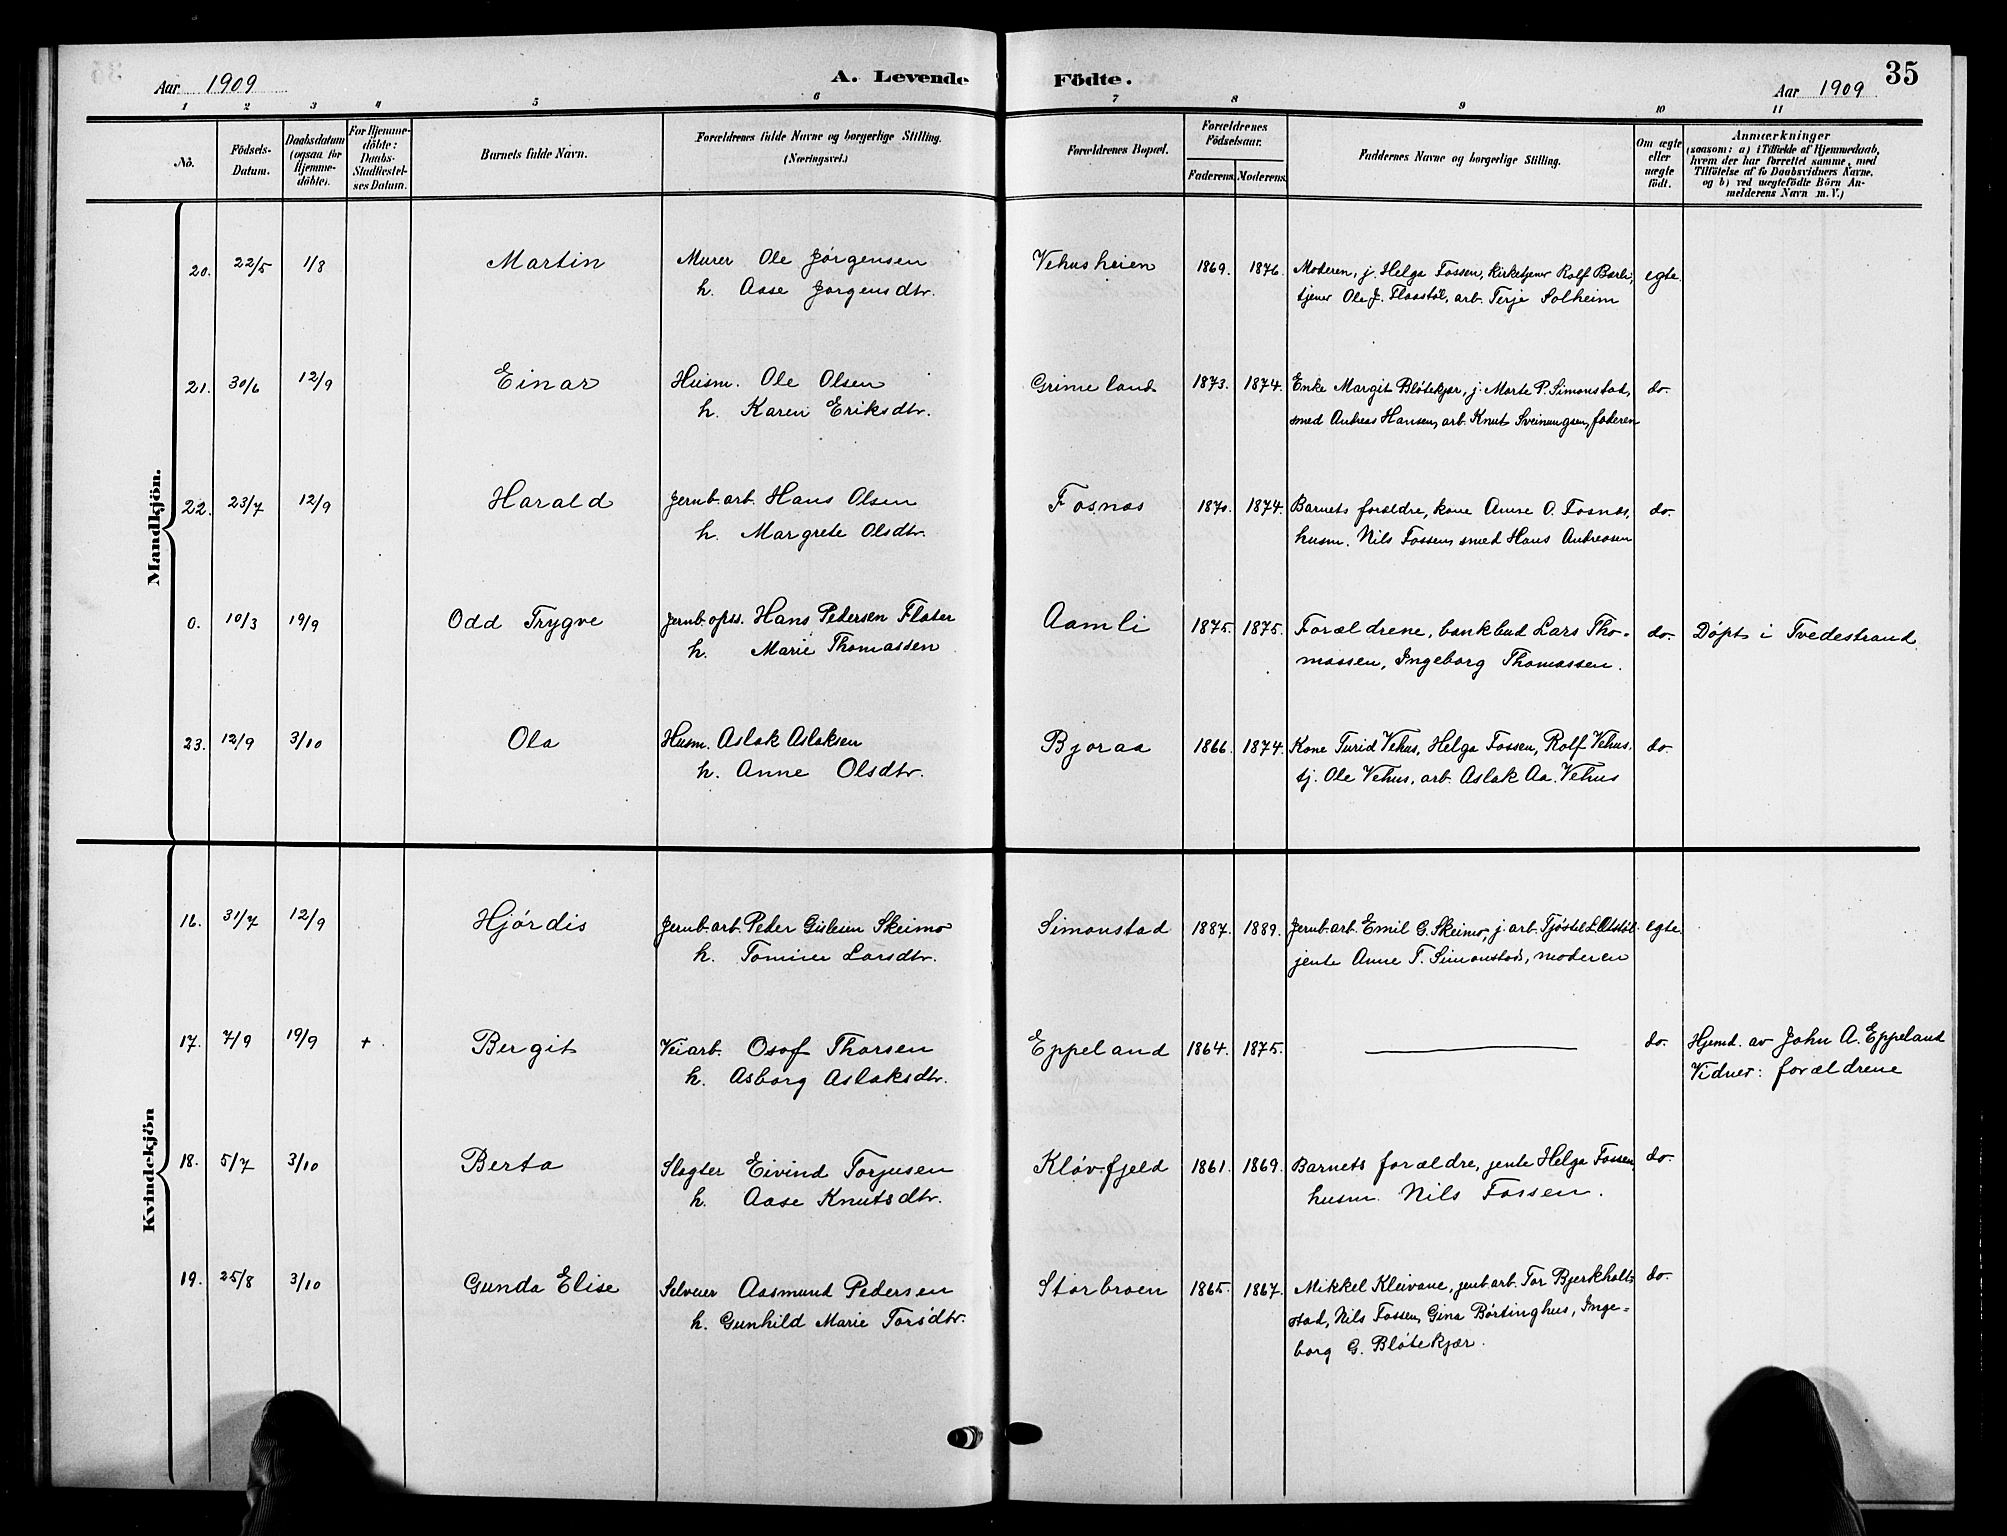 Aar 1909
A. Levende Födte.
Aar 1909
35
1 2 3 4 5 6 7 8 9 10 11
No.
Födsels-Datum.
Daabsdatum (ogsaa for Hjemmedöbte).
For Hjemmedöbte: Daabs-Stadfæstelses Datum.
Barnets fulde Navn.
Forældrenes fulde Navne og borgerlige Stilling. (Næringsvei.)
Forældrenes Bopæl.
Forældrenes Födselsaar.
Faderens. Moderens.
Faddernes Navne og borgerlige Stilling.
Om ægte eller uægte födt.
Anmærkninger
(saasom: a) i Tilfælde af Hjemmedaab, hvem der har forrettet samme, med Tilföielse af to Daabsvidners Navne, og b) ved uægtefödte Börn Anmelderens Navn m. V.)
Mandkjön.
20. 22/5 1/8 Martin Murer Ole Jørgensen Vehusheien 1869. 1876. Moderen, j. Helga Fossen, kirketjener Rolf Barli, egte.
h. Aase Jørgensdtr. tjener Ole J. Flaastøl, arb. Terje Solheim
21. 30/6 12/9 Einar Husm. Ole Olsen Grimeland 1873. 1874. Enke Margit Bløtekjær, j. Marte P. Simonstad, do.
h. Karen Eriksdtr. smed Andreas Hansen, arb. Knut Sveinungsen, faderen
22. 23/7 12/9 Harald Jernb.arb. Hans Olsen Fosnæs 1870. 1874. Barnets forældre, kone Anne O. Fosnæs, do.
h. Margrete Olsdtr. husm. Nils Fossen, smed Hans Andreasen
0. 10/3 19/9 Odd Trygve Jernb.opss. Hans Petersen Flater Aamli 1875. 1875. Forældrene, bankbud Lars Tho- do. Døpt i Tvedestrand
h. Marie Thomassen massen, Ingeborg Thomassen.
23. 12/9 3/10 Ola Husm. Aslak Aslaksen Bjoraa 1866. 1874. Kone Turid Vehus, Helga Fossen, Rolf Vehus, do.
h. Anne Olsdtr. tj. Ole Vehus, arb. Aslak Aa. Vehus
Kvindekjön
16. 31/7 12/9 Hjørdis Jernb.arb. Peder Gislesen Skeimo Simonstad 1887. 1889. Jernb.arb. Emil G. Skeimo, j. arb. Tjøstel egte.
h. Tomine Larsdtr. jente Anne T. Simonstad, moderen
17. 7/9 19/9 + Bergit Veiarb. Osof Thorsen Eppeland 1864. 1875. do. Hjemd. av John A. Eppeland
h. Asborg Aslaksdtr. Vidner: forældrene
18. 5/7 3/10 Berta Slagter Eivind Torjusen Kløvfjeld 1861. 1869. Barnets forældre, jente Helga Fossen do.
h. Aase Knutsdtr. husm. Nils Fossen.
19. 25/8 3/10 Gunda Elise Selveier Aasmund Pedersen Storbroen 1865. 1867. Mikkel Kleivane, jenb.arb. Tor Bjerkholt- do.
h. Gunhild Marie Torsdtr. stad, Nils Fossen, Gina Børtinghus, Inge-
borg G. Bløtekjær.